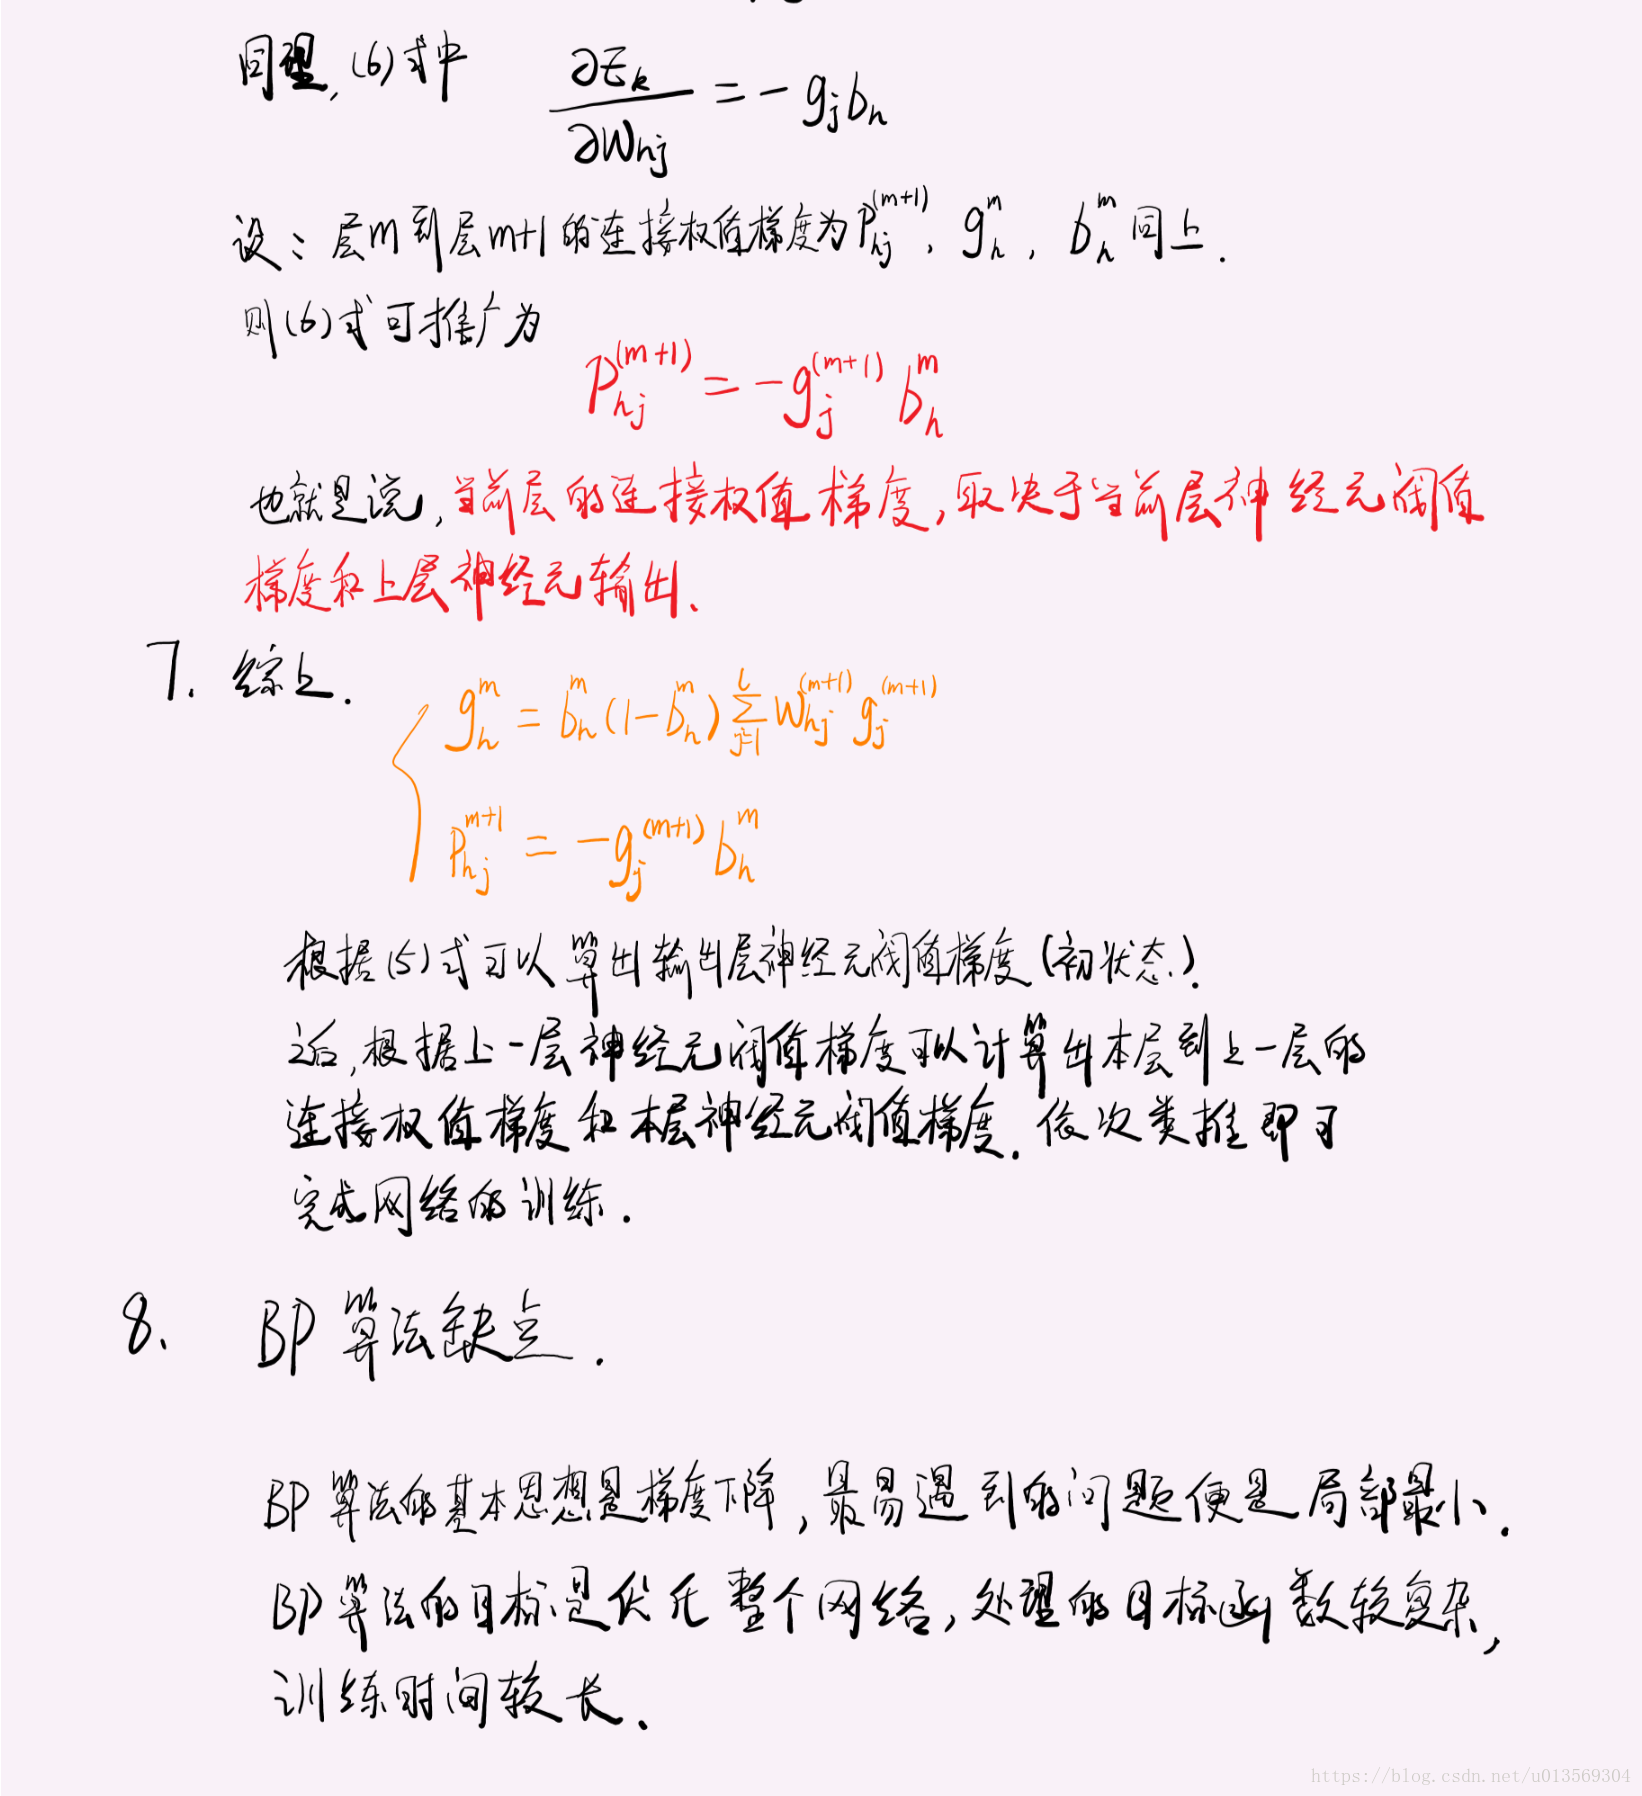 同理,(6)式中 ∂E_k/∂W_hj = -g_j b_h
设:层m到层m+1的连接权值梯度为P_hj^(m+1), g_h^m, b_h^m同上.
则(6)式可推广为
P_hj^(m+1) = -g_j^(m+1) b_h^m
也就是说,当前层的连接权值梯度,取决于当前层神经元阀值
梯度和上层神经元输出.
7. 综上.
g_h^m = b_h^m(1-b_h^m) ∑_{j=1}^{l} W_hj^(m+1) g_j^(m+1)
P_hj^{m+1} = -g_j^(m+1) b_h^m
根据(5)式可以算出输出层神经元阀值梯度(初状态).
之后,根据上一层神经元阀值梯度可以计算出本层到上一层的
连接权值梯度和本层神经元阀值梯度.依次类推即可
完成网络的训练.
8. BP算法缺点.
BP算法的基本思想是梯度下降,最易遇到的问题便是局部最小.
BP算法的目标是优化整个网络,处理的目标函数较复杂,
训练时间较长.
https://blog.csdn.net/u013569304